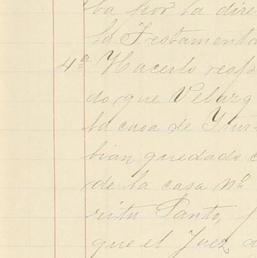 ba por la dire
la Testamenta
4ª Hacerlo resp
do que Velarg
la casa de Ytur
bian quedado
de la casa Nº
ritu Santo,
que el Juez